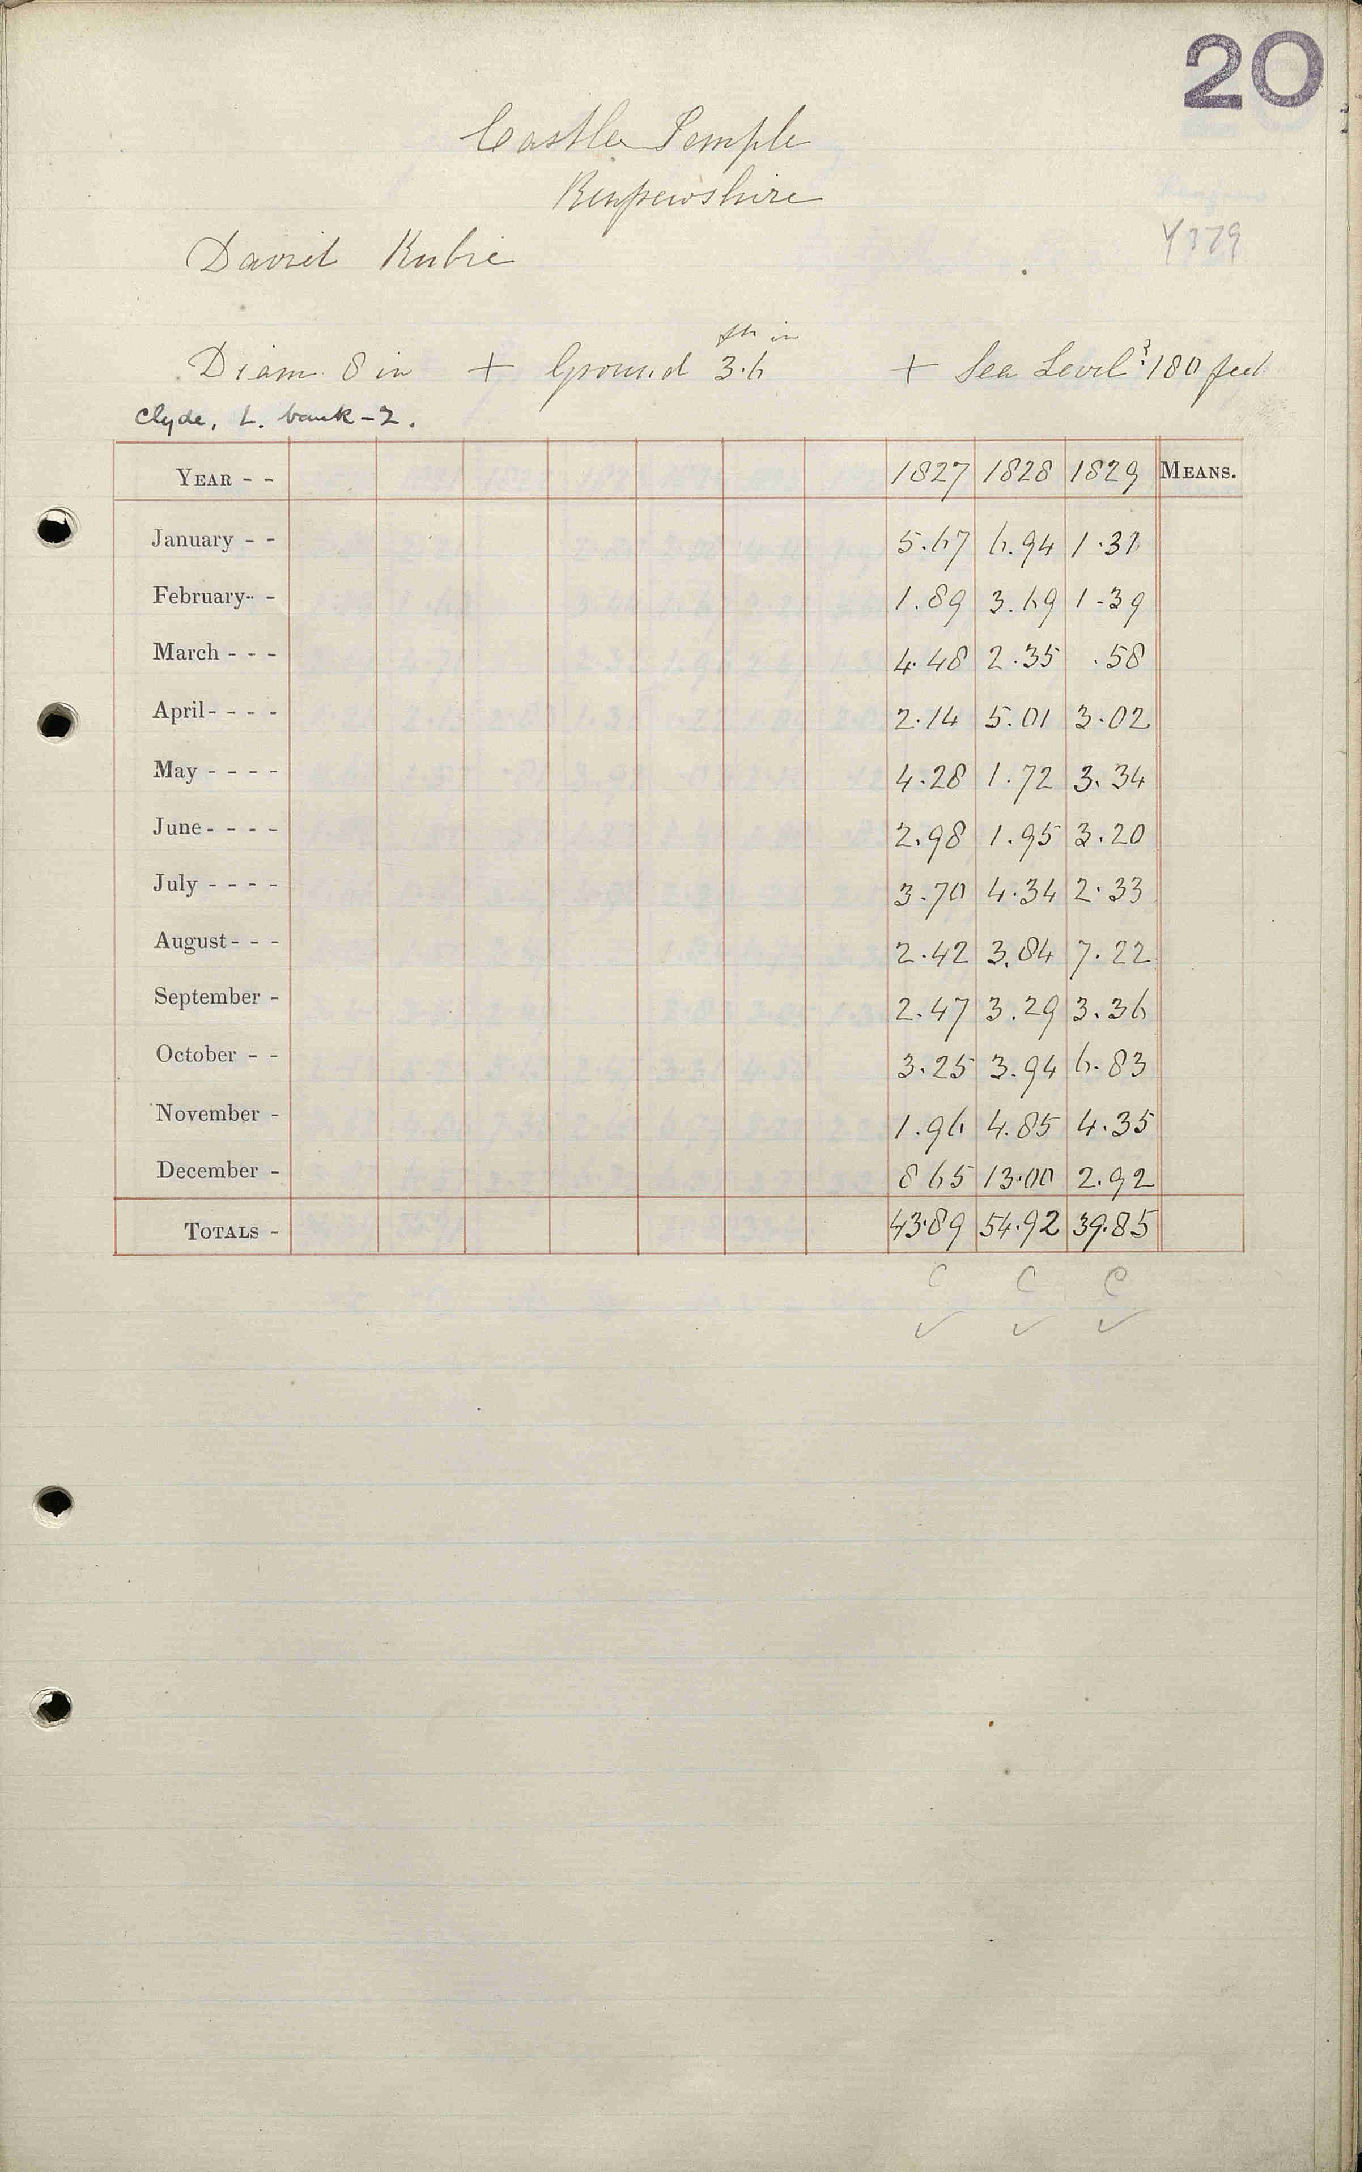 20
Castle Semple
Renfrewshire
Y379
David Kubie
ft in
Diam. 8 in + Ground 3.6 + Sea Level ? 180 feet
Clyde, L. bank - 2.
YEAR - - 1827 1828 1829 MEANS.
January - - 5.67 6.94 1.31
February - - 1.89 3.69 1.39
March - - - 4.48 2.35 .58
April - - - - 2.14 5.01 3.02
May - - - - 4.28 1.72 3.34
June - - - - 2.98 1.95 3.20
July - - - - 3.70 4.34 2.33
August - - - 2.42 3.84 7.22
September - 2.47 3.29 3.36
October - - 3.25 3.94 6.83
November - 1.96 4.85 4.35
December - 8 65 13.00 2.92
TOTALS - 43.89 54.92 39.85
C C C